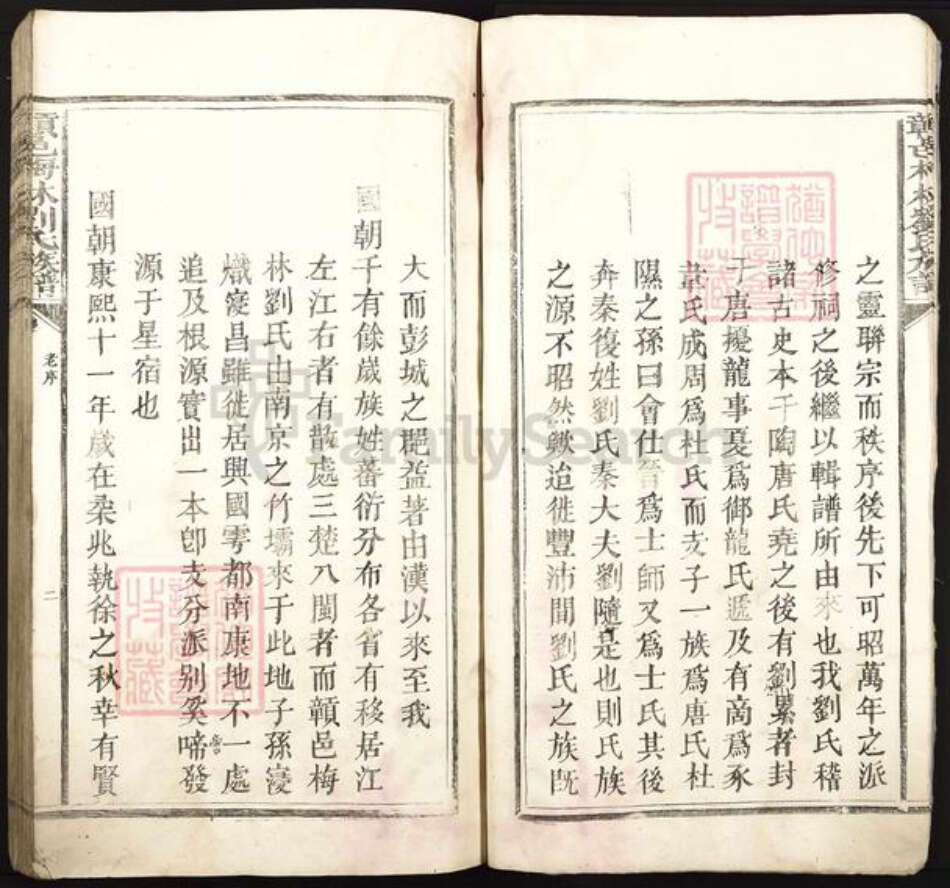 之靈聯宗而秩序後先下可昭萬年之派
修祠之後繼以輯譜所由來也我劉氏稽
諸古史本于陶唐氏堯之後有劉累者封
于唐擾龍事夏爲御龍氏遞及有商爲豕
韋氏成周爲杜氏而支子一族爲唐氏杜
隰之孫曰會仕晉爲士師又爲士氏其後
奔秦復姓劉氏秦大夫劉隨是也則氏族
之源不昭然歟迨徙豐沛間劉氏之族旣
大而彭城之郡益著由漢以來至我
國朝千有餘歲族姓蕃衍分布各省有移居江
左江右者有散處三楚八閩者而贛邑梅
林劉氏由南京之竹壩來于此地子孫寖
熾寖昌雖徙居興國雩都南康地不一處
追及根源實出一本卽支分派别奚啻發
源于星宿也
國朝康熙十一年歲在橤兆執徐之秋幸有賢
贛邑梅林劉氏族譜
老序
二
FamilySearch